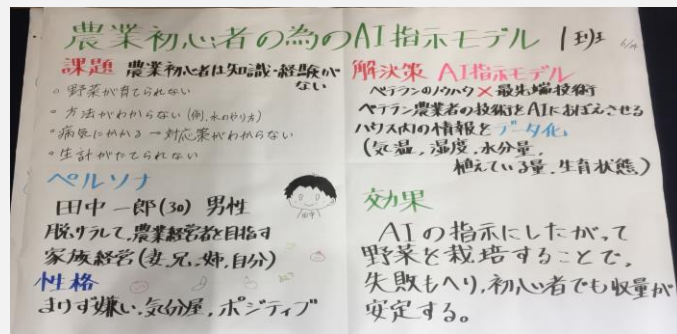 農業初心者の為のAI指示モデル 1班
課題 農業初心者は知識・経験がない
。野菜が育てられない
。方法がわからない(例,水のやり方)
。病気にかかる→対応策がわからない
。生計がたてられない
ペルソナ
田中一郎(30) 男性
脱サラして、農業経営者を目指す
家族経営(妻,兄,姉,自分)
性格
まけず嫌い,気分屋,ポジティブ
田中
解決策 AI指示モデル
ベテランのノウハウ×最先端技術
ベテラン農業者の技術をAIにおぼえさせる
ハウス内の情報をデータ化。
(気温,湿度,水分量,
植えている量,生育状態)
効果
AIの指示にしたがって
野菜を栽培することで、
失敗もへり,初心者でも収量が
安定する。